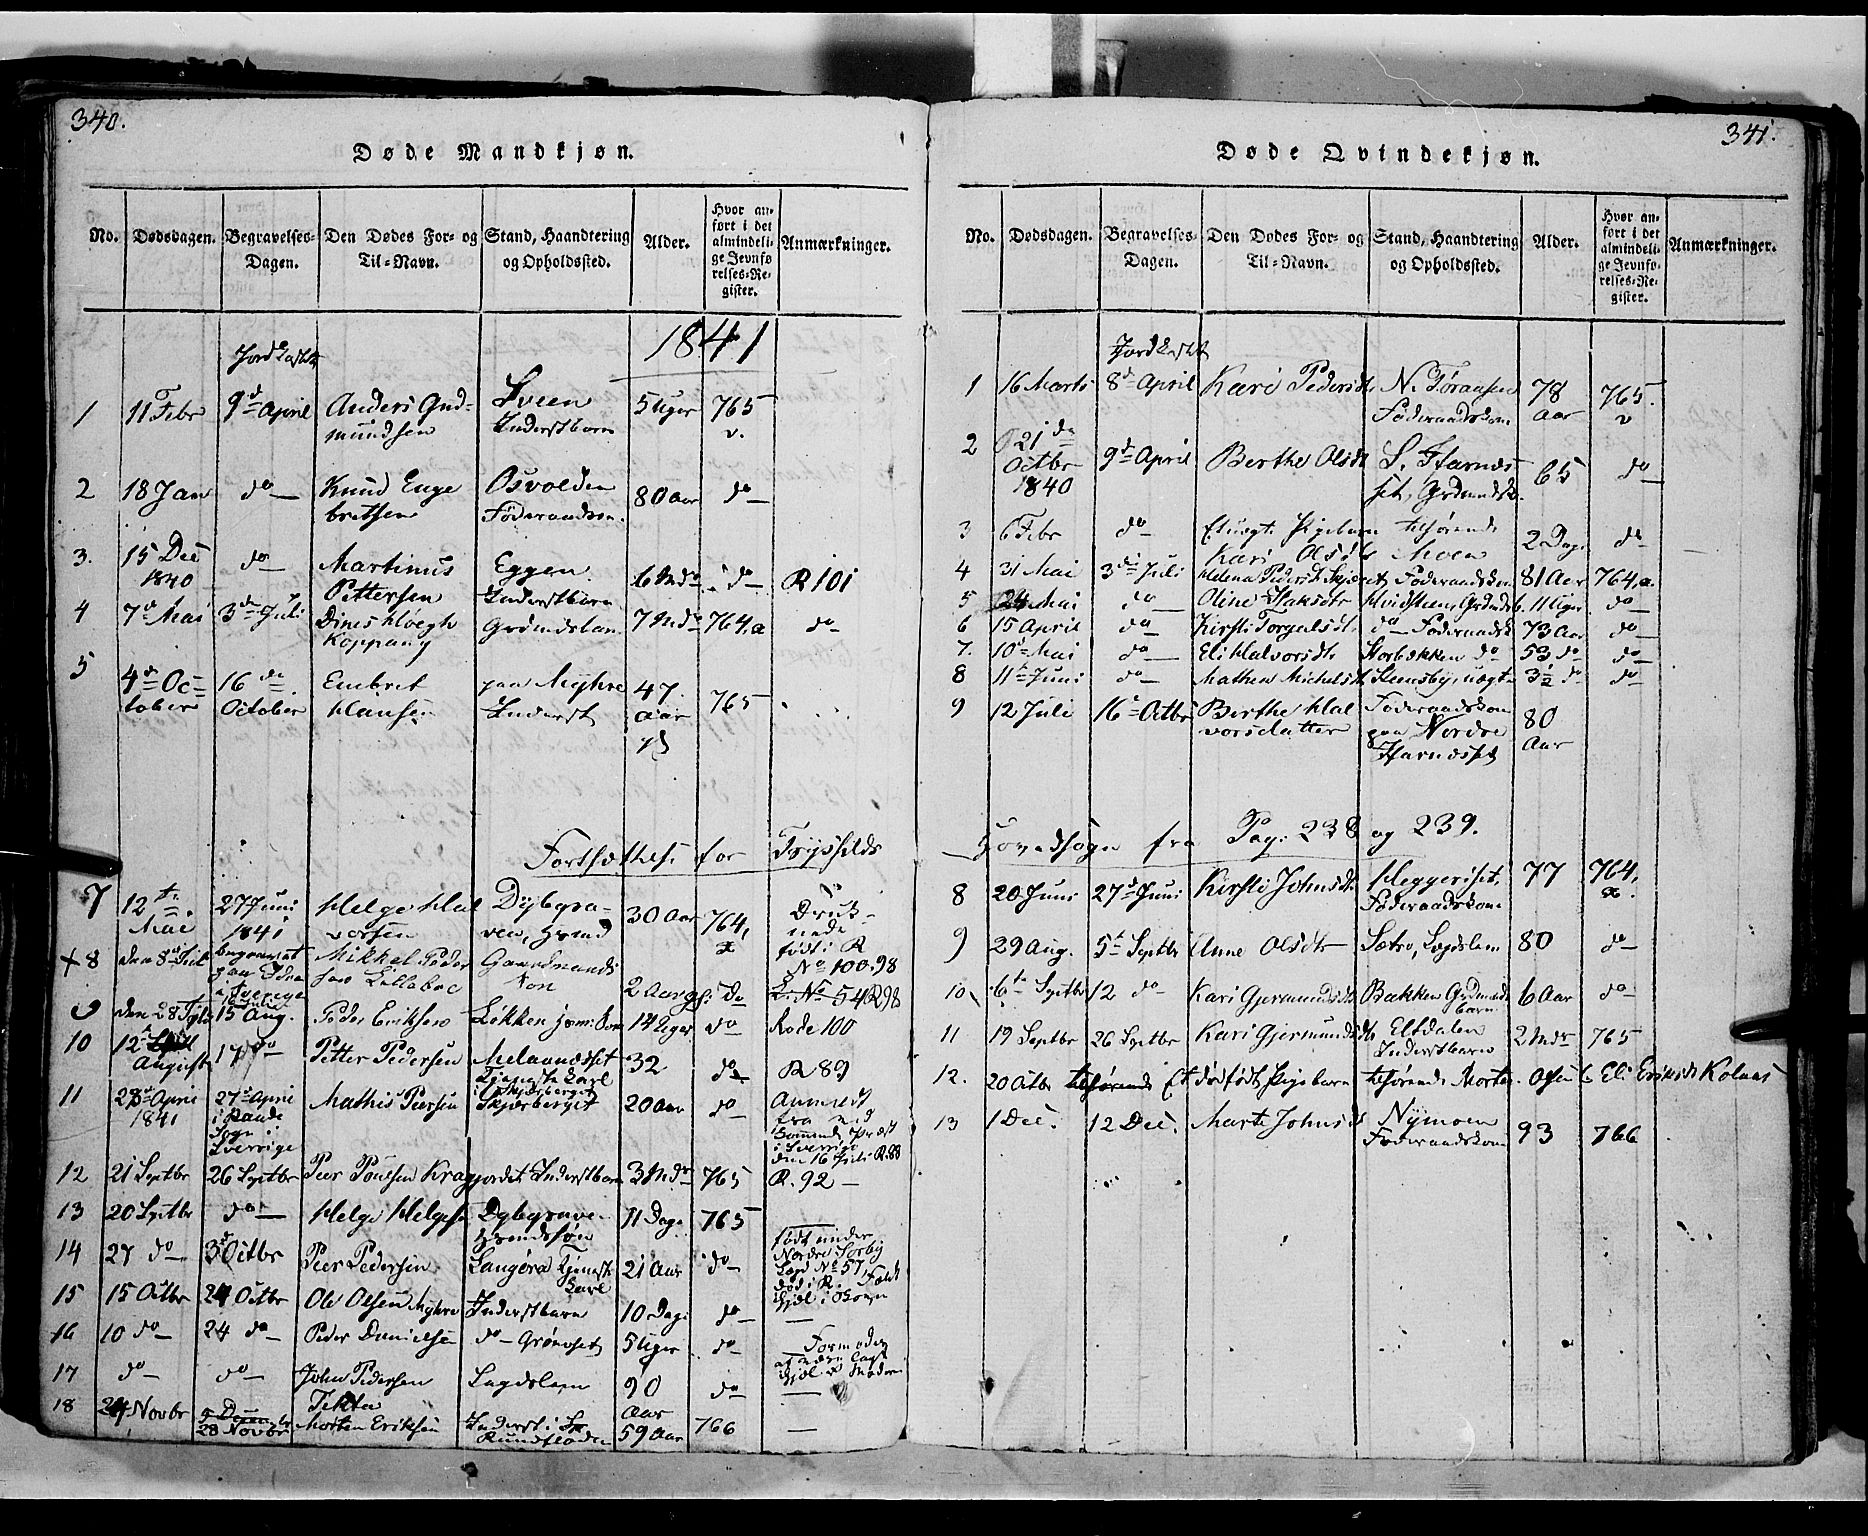 340.
Døde Mandkjøn.
No. Dødsdagen. Begravelses-Dagen. Den Dødes For- og Til-Navn. Stand, Haandtering og Opholdssted. Alder. Hvor anført i det almindelige Jevnførelses-Register. Anmærkninger.
1841
Jordkastet
1 11 Febr 9d April Anders Gudmundsen Sveen Inderstbarn 5 Uger 765 v.
2 18 Jan do Knud Engebretsen Osvolden Föderaadsm. 80 Aar do
3. 15 Dec 1840 do Martinus Pettersen Eggen Inderstbarn 6 Mdr do R 101
4 7d Mai 3die Juli Dines Høegh Koppang Grdmdsbarn 7 Mdr 764,a do
5 4d October 16de October Embret Hansen paa Myhre Inderst 47 Aar 765
Fortsættelse for Trysilds
7 12te Mai 27 Juni 1841 Helge Halvorsen Dybgraven, 30 Aar 764, a
födt i R No 100.98
+ 8 den 8de begravet paa Idre i Sverige Mikkel Peder Lillebo Gaardmands Søn 2 Aar do L. No 54 R98
9 15 Aug. Peder Eriksen Løkken 14 Uger do Rode 100
10 12t August 17 do Petter Pedersen Melaandsset Tjenestekarl i Skjærberget 32 do R 89
11 28de April 1841 27d April i Sogn i Sverige Mathis Peersen Skjærberget 20 Aar do Anmeldt fra i Sverrig den 16 Juli R.88
12 21 Septbr 26 Septbr Peer Poulsen Kragjordet Inderstbarn 3 Mdr 765 R. 92 —
13 20 Septbr do Helge Helgesen Dybgraven 11 Dage 765
14 27 do 3d Octbr Peer Pedersen Langøra Tjenestekarl 21 Aar do födt under Nordre Sorby Lægd No 57, död i R.
15 15 Octbr 24 Octbr Ole Olsen Myhre Inderstbarn 10 Dage do —
16 10 do 24 do Peder Danielsen do Grønoset 5 Uger do
17 do do John Pedersen Lægdslem 90 Aar do —
18 24 Novbr 28 Novbr Morten Eriksen Inderst i 59 Aar 766 —
341.
Døde Qvindekjøn.
No. Dødsdagen. Begravelses-Dagen. Den Dødes For- og Til-Navn. Stand, Haandtering og Opholdssted. Alder. Hvor anført i det almindelige Jevnførelses-Register. Anmærkninger.
Jordkastet
1 16 Marts 8d April Kari Pedersdtr N. Föraadskone 78 Aar 765. v
2 21de Octbr 1840 9d April Berthe Olsdtr S. Harnæsset, Grdmandsk. 65 do
3 6 Febr do Et uægte Pigebarn tilhørende Kari Olsdtr Moen 2 Dage do
4 31 Mai 3die Juli Helena Pedersdtr Föderaadskone 81 Aar 764,a.
5 24 Mai do Oline Isaksdtr 11 Uger do
6 15 April do Kirsti Torgalsdtr do Föderaadsk 73 Aar do
7. 10d Mai do Eli Halvorsdtr Storbækken do 53 do do
8 11te Juni do Mathea Michelsdtr Steensby, uægte 3½ do do
9 12 Juli 16d Octbr Berthe Halvorsdatter Föderaadskone paa Nordre Harnæsset 80 Aar
Hovedsogn fra Pag: 238 og 239.
8 20 Juni 27d Juni Kirsti Johnsdtr Heggeriset, Föderaadskone 77 764, a.
9 29 Aug. 5te Septbr Anne Olsdtr Sætre, Lægdslem 80 do
10 6te Septbr 12 do Kari Gjermundsdtr Bakken Grdmdsbarn 6 Aar do
11 19 Septbr 26 Septbr Kari Gjermundsdtr Eltdalen Inderstbarn 2 Mdr 765
12. 20 Octbr tilhørende Et dødfødt Pigebarn tilhørende Morten Olsen & Eli Eriksdtr Kolaas
13 1 Dec. 12 Dec. Marte Johnsdtr Nymoen Föderaadskone 93 766